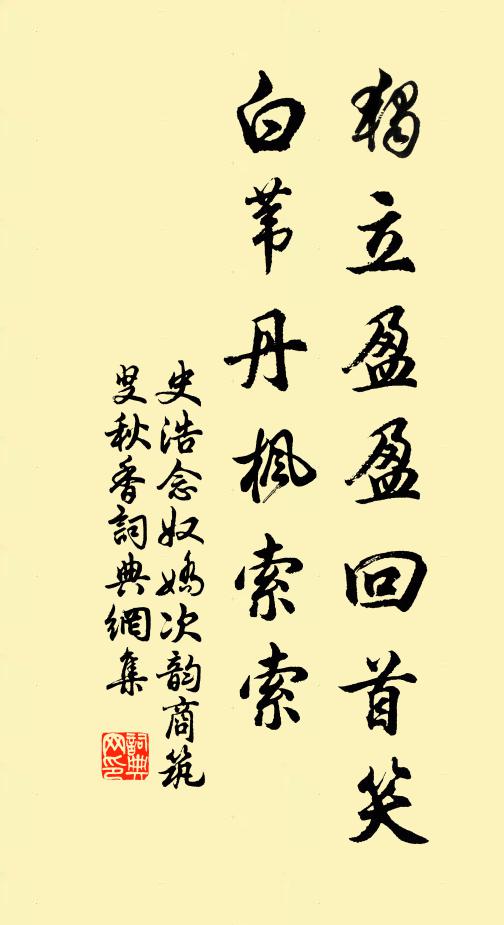 獨立盈盈回首笑
白苇丹楓索索
史浩念奴嬌次韵商筑
叟秋香詞典網集
詞典
网印